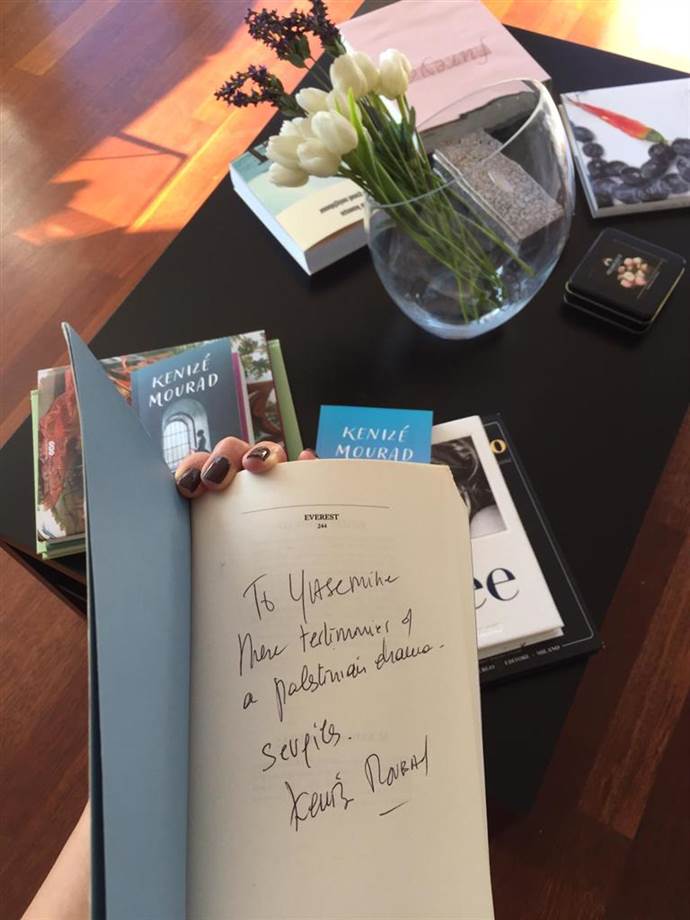 fureya
KENIZÉ
MOURAD
KENIZÉ
MOURAD
ee
EDITORE - MILANO
EVEREST
244
To Yasemine
These testimonies of
a palestinian drama.
sevgiler.
Kenizé Mourad